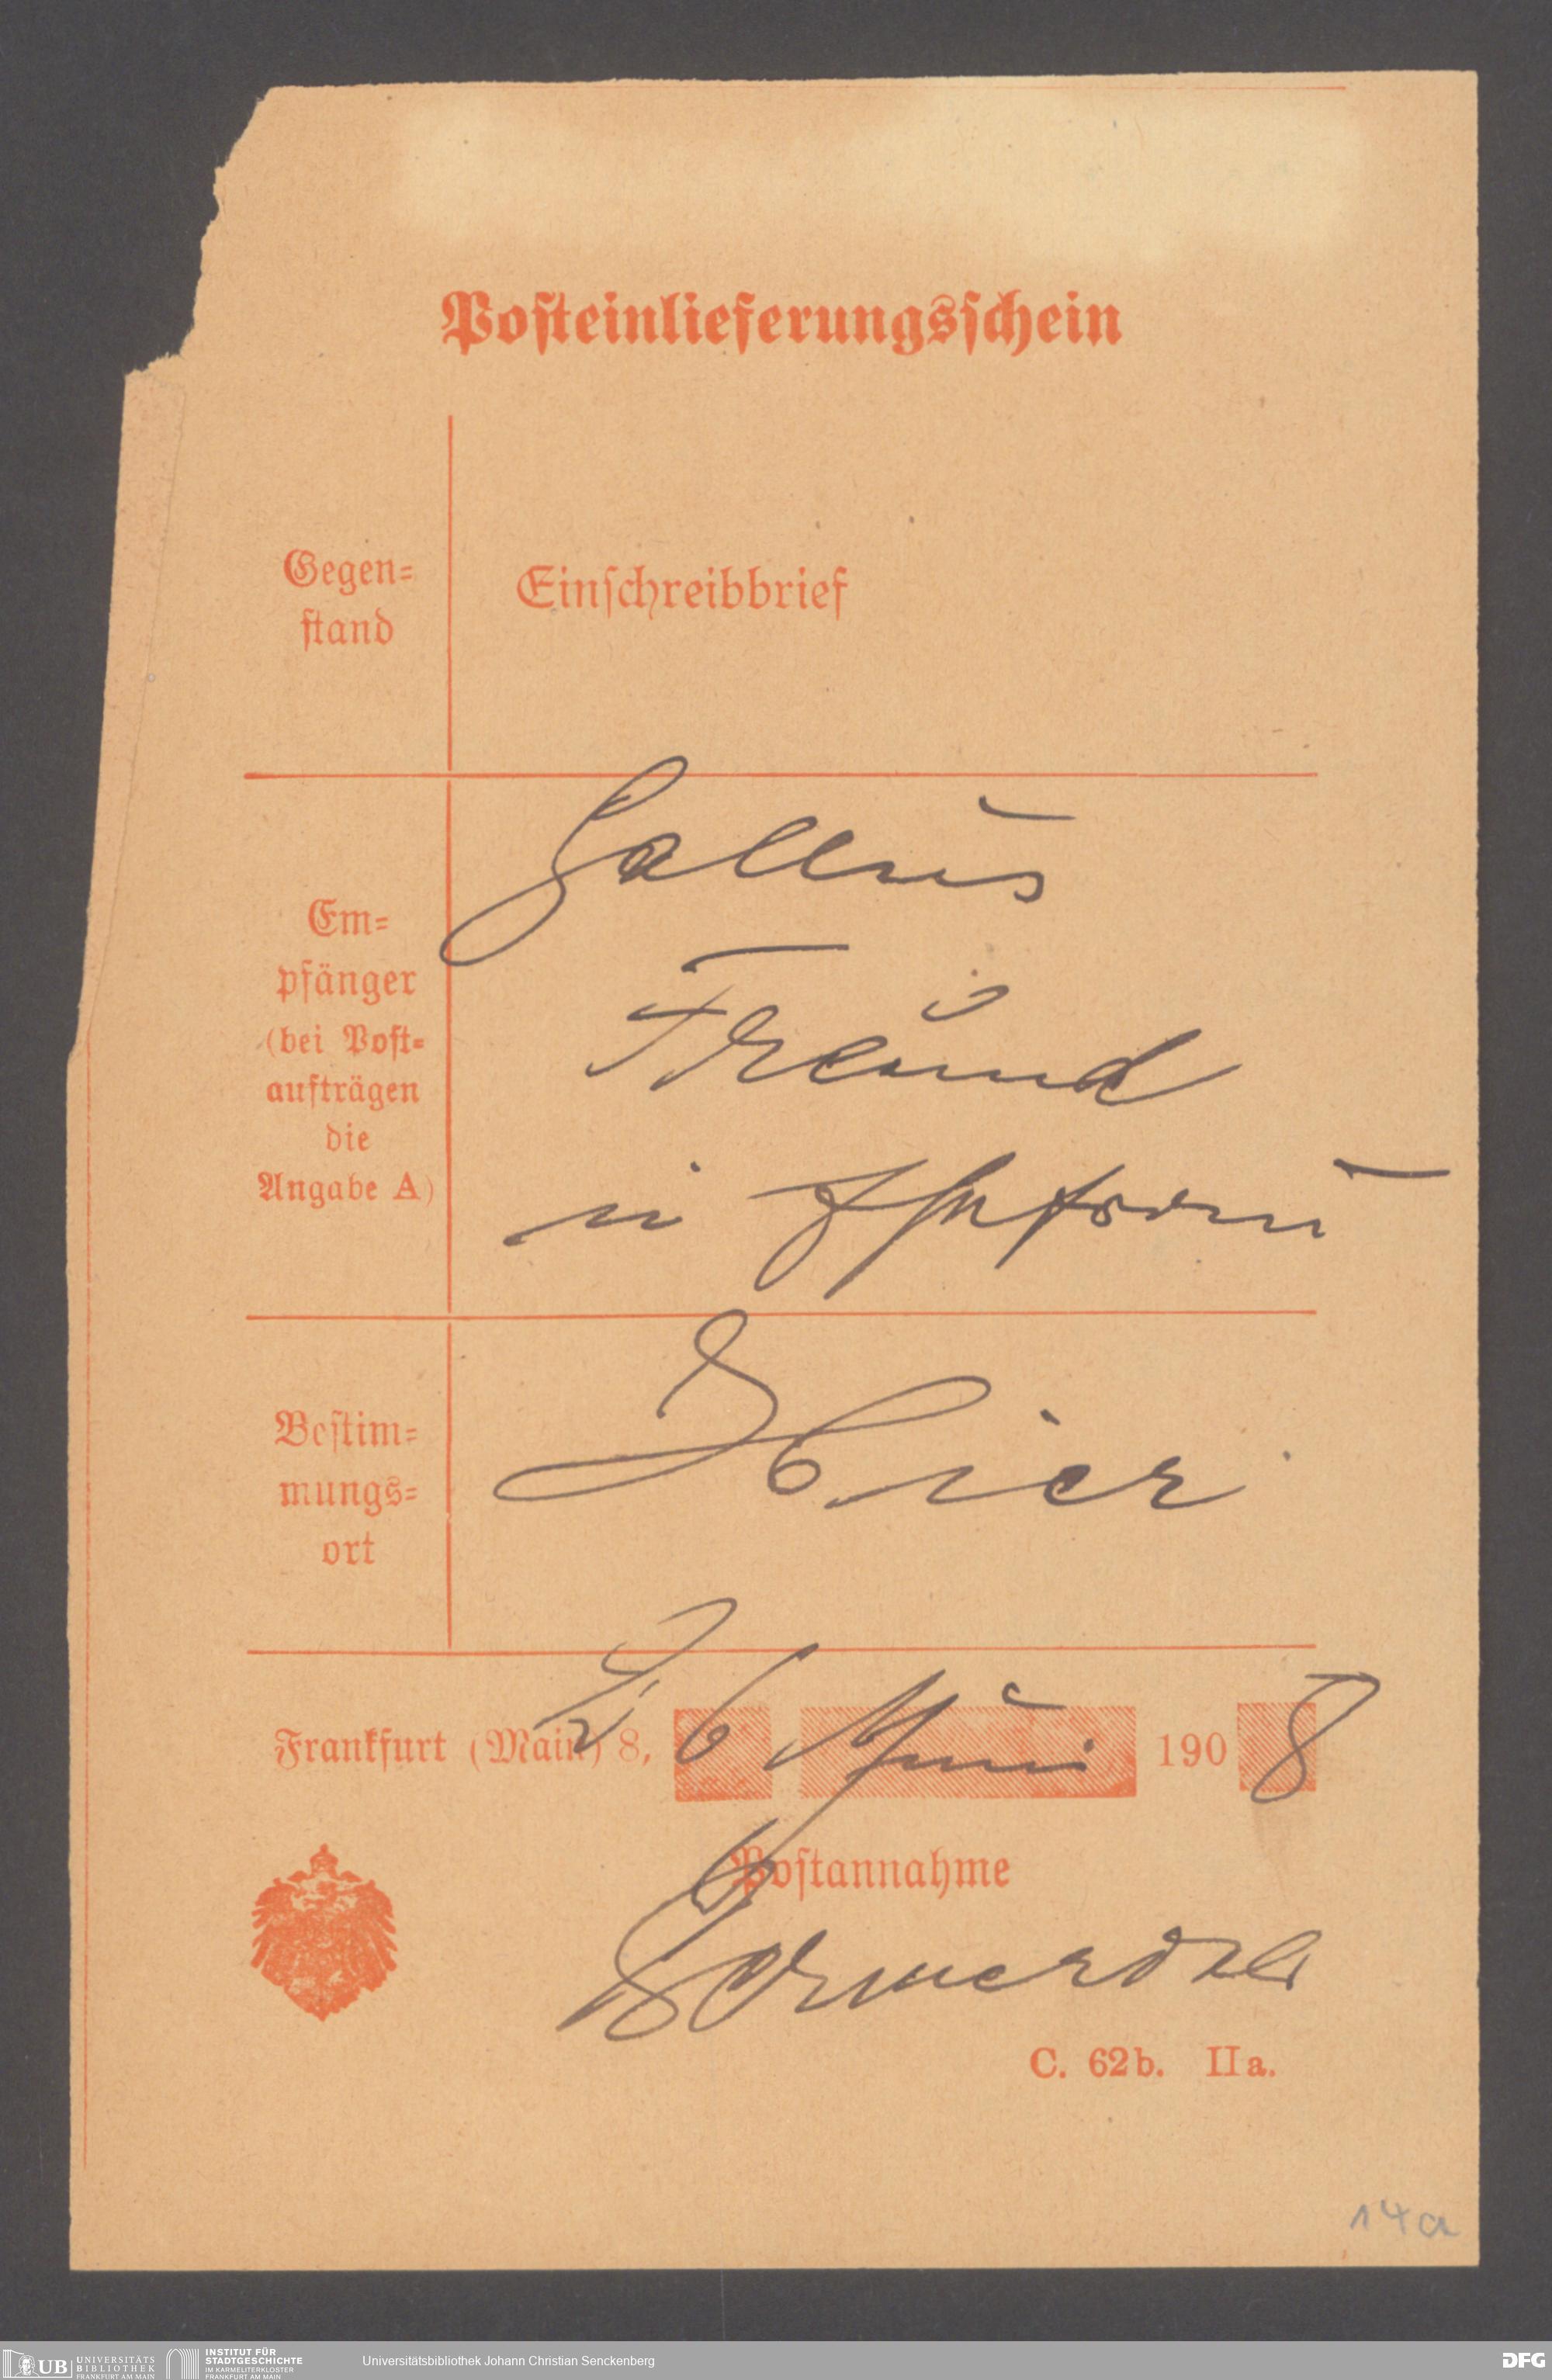 Posteinlieferungsschein
Gegen-
stand
Einschreibbrief
Em-
pfänger
(bei Post-
aufträgen
die
Angabe A)
Gallus
Freund
Bestim-
mungs-
ort
Hier
Frankfurt (Main) 8, 6 Juni 1908
Postannahme
C. 62b. IIa.
14a
UB UNIVERSITÄTS
BIBLIOTHEK
FRANKFURT AM MAIN
INSTITUT FÜR
STADTGESCHICHTE
IM KARMELITERKLOSTER
FRANKFURT AM MAIN
Universitätsbibliothek Johann Christian Senckenberg
DFG